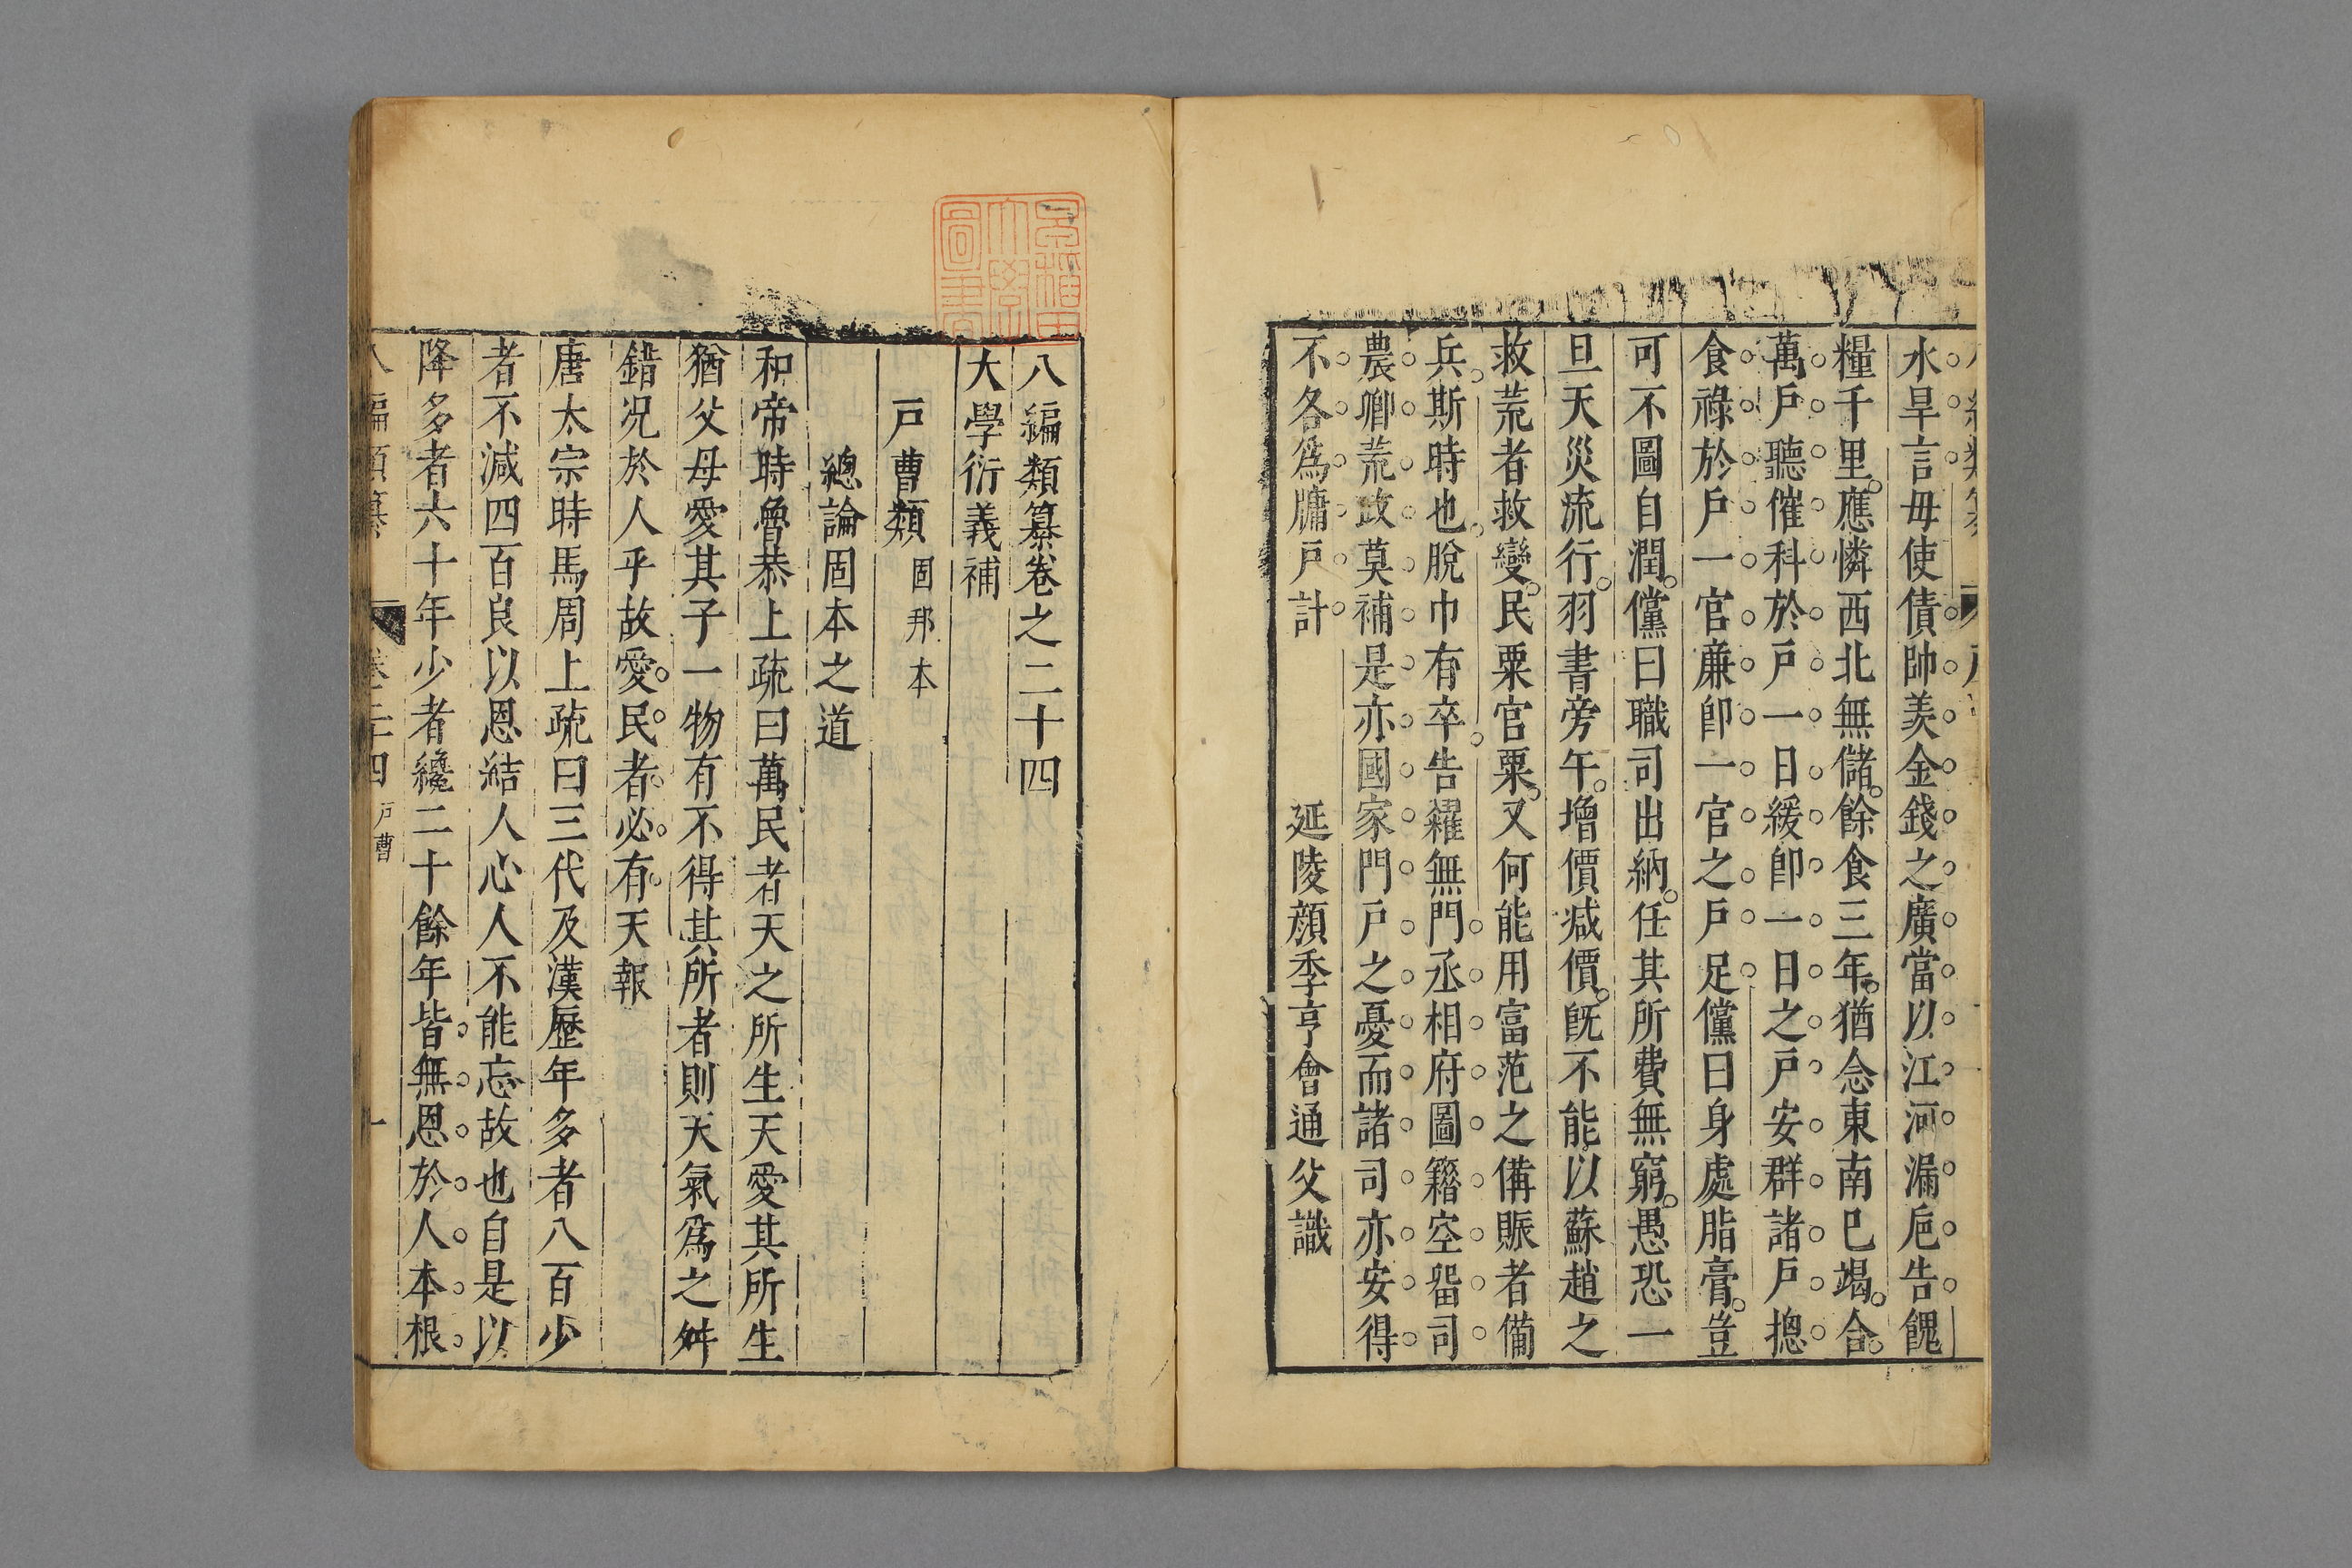 水旱言毋使債帥羨金錢之廣當以江河漏巵告餽
糧千里應憐西北無儲餘食三年猶念東南巳竭合
萬戸聽催科於戸一日緩卽一日之戸安群諸戸摠
食祿於戸一官廉卽一官之戸足儻曰身處脂膏豈
可不圖自潤儻曰職司出納任其所費無窮愚恐一
旦天災流行羽書旁午增價减價旣不能以蘇趙之
救荒者救變民粟官粟又何能用富范之備賑者備
兵斯時也脫巾有卒告糴無門丞相府圖籍空畱司
農卿荒政莫補是亦國家門戸之憂而諸司亦安得
不各爲牖戸計 延陵顔季亨會通父識
八編類纂卷之二十四
大學衍義補
戸曹類 固邦本
總論固本之道
和帝時魯恭上疏曰萬民者天之所生天愛其所生
猶父母愛其子一物有不得其所者則天氣爲之舛
錯况於人乎故愛民者必有天報
唐太宗時馬周上疏曰三代及漢歷年多者八百少
者不减四百良以恩結人心人不能忘故也自是以
降多者六十年少者纔二十餘年皆無恩於人本根
八編類纂 卷二十四 戸曹 一
早稲田大學圖書